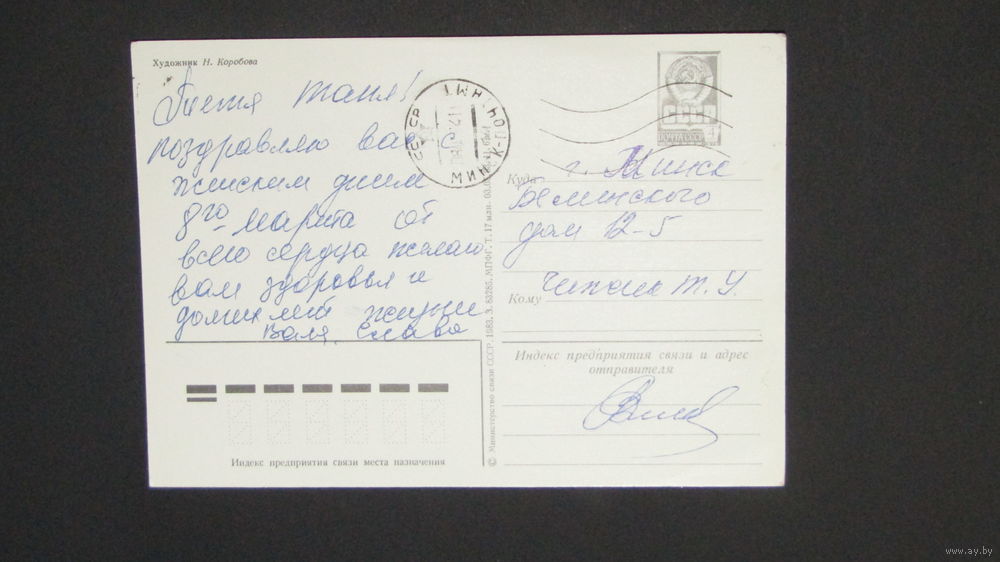 Художник Н. Коробова
Тётя Таня!
поздравляю вас с
женским днём
8го марта от
всего сердца желаю
вам здоровья и
долгих лет жизни
Валя, Слава
МИНСК
СССР
ПОЧТА СССР
4
Куда г. Минск
Белинского
дом 12-5
Кому Т. У.
Индекс предприятия связи и адрес
отправителя
© Министерство связи СССР, 1983. З. 82285. МПФГ. Т. 17 млн.
Индекс предприятия связи места назначения
www.ay.by